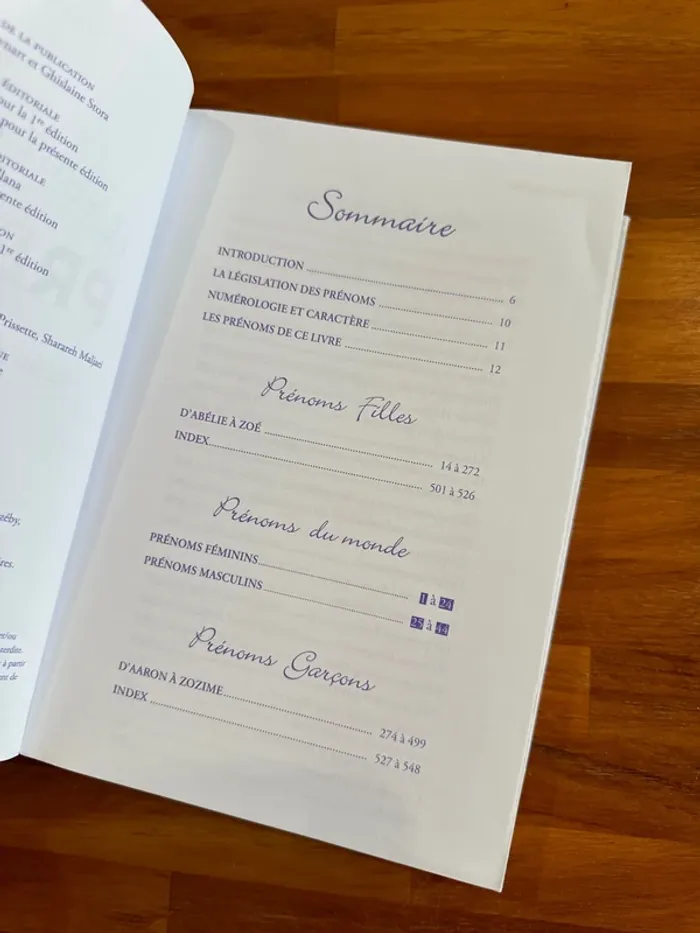 DE LA PUBLICATION
et Ghislaine Stora
ÉDITORIALE
pour la 1re édition
pour la présente édition
édition
1re édition
Prissette, Sharareh Maljaei
Sommaire
INTRODUCTION 6
LA LÉGISLATION DES PRÉNOMS 10
NUMÉROLOGIE ET CARACTÈRE 11
LES PRÉNOMS DE CE LIVRE 12
Prénoms Filles
D'ABÉLIE À ZOÉ 14 à 272
INDEX 501 à 526
Prénoms du monde
PRÉNOMS FÉMININS 1 à 24
PRÉNOMS MASCULINS 25 à 44
Prénoms Garçons
D'AARON À ZOZIME 274 à 499
INDEX 527 à 548